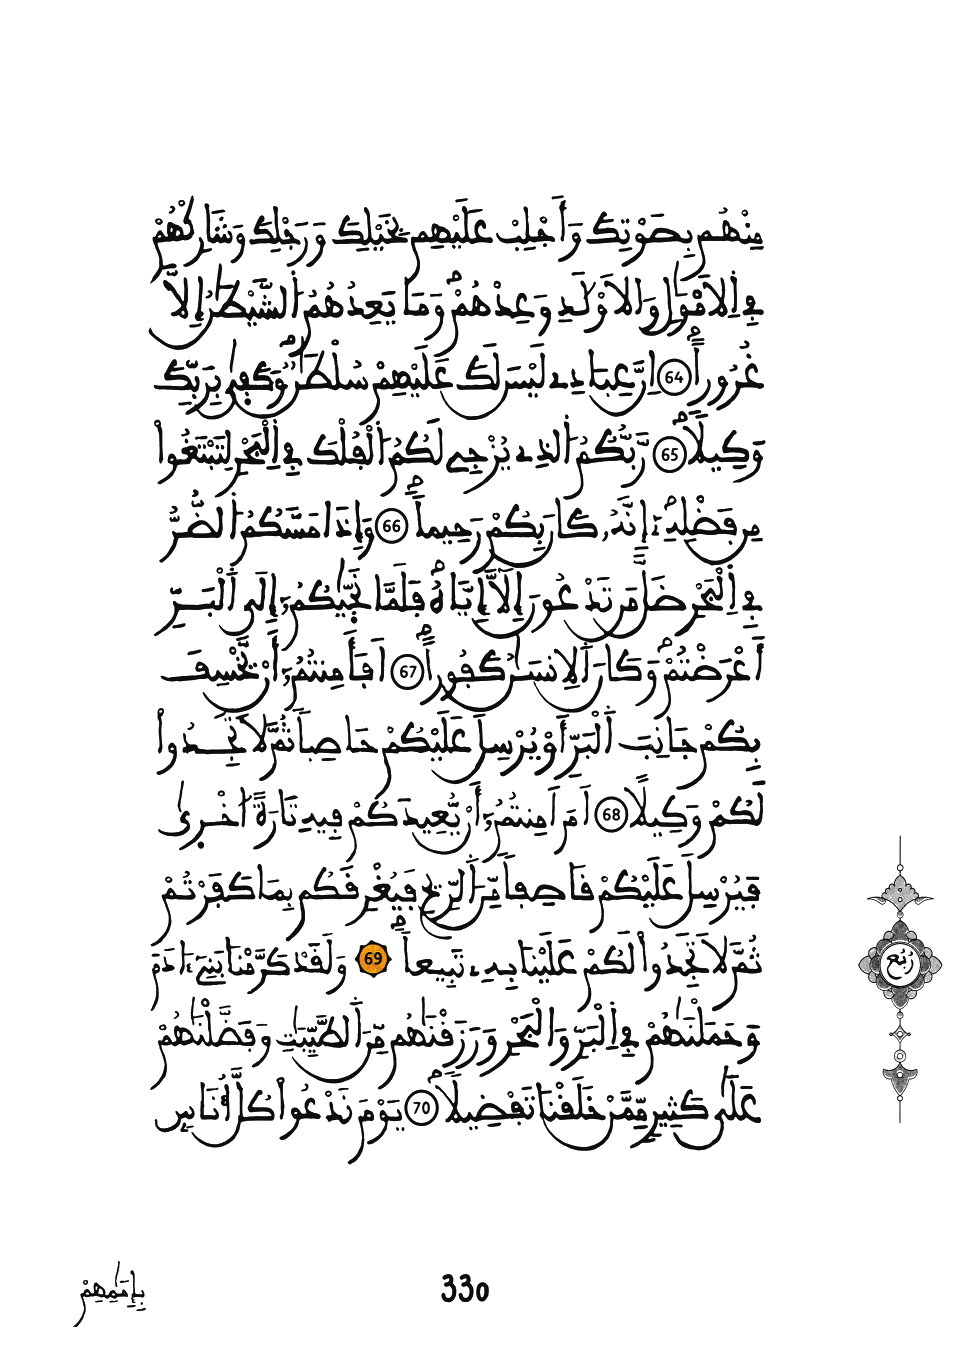 مِنْهُم بِصَوْتِكَ وَأَجْلِبْ عَلَيْهِم بِخَيْلِكَ وَرَجْلِكَ وَشَارِكْهُمْ
فِے اِلَامْوَٰلِ وَالَاوْلَٰدِ وَعِدْهُمْ وَمَا يَعِدُهُمُ اُلشَّيْطَٰنُ إِلَّا
غُرُوراً 64 اِنَّ عِبَادِے لَيْسَ لَكَ عَلَيْهِمْ سُلْطَٰنٌ وَكَف۪يٰ بِرَبِّكَ
وَكِيلًا 65 رَّبُّكُمُ اُلذِے يُزْجِے لَكُمُ اُلْفُلْكَ فِے اِلْبَحْرِ لِتَبْتَغُواْ
مِن فَضْلِهِۦٓ إِنَّهُۥ كَانَ بِكُمْ رَحِيماً 66 وَإِذَا مَسَّكُمُ اُلضُّرُّ
فِے اِلْبَحْرِ ضَلَّ مَن تَدْعُونَ إِلَّآ إِيَّاهُ فَلَمَّا نَجّ۪يٰكُمُۥٓ إِلَى اَلْبَرِّ
أَعْرَضْتُمْ وَكَانَ اَلِانسَٰنُ كَفُوراً 67 اَفَأَمِنتُمُۥٓ أَنْ يَّخْسِفَ
بِكُمْ جَانِبَ اَلْبَرِّ أَوْ يُرْسِلَ عَلَيْكُمْ حَاصِباً ثُمَّ لَا تَجِدُواْ
لَكُمْ وَكِيلًا 68 اَمَ اَمِنتُمُۥٓ أَنْ يُّعِيدَكُمْ فِيهِ تَارَةً اُخْر۪يٰ
فَيُرْسِلَ عَلَيْكُمْ قَاصِفاً مِّنَ اَلرِّيحِ فَيُغْرِقَكُم بِمَا كَفَرْتُمْ
ثُمَّ لَا تَجِدُواْ لَكُمْ عَلَيْنَا بِهِۦ تَبِيعاً 69 وَلَقَدْ كَرَّمْنَا بَنِےٓ ءَادَمَ
وَحَمَلْنَٰهُمْ فِے اِلْبَرِّ وَالْبَحْرِ وَرَزَقْنَٰهُم مِّنَ اَلطَّيِّبَٰتِ وَفَضَّلْنَٰهُمْ
عَلَىٰ كَثِيرٍ مِّمَّنْ خَلَقْنَا تَفْضِيلًا 70 يَوْمَ نَدْعُواْ كُلَّ أُنَاسِۢ
رُبُع
بِإِمَٰمِهِمْ
330